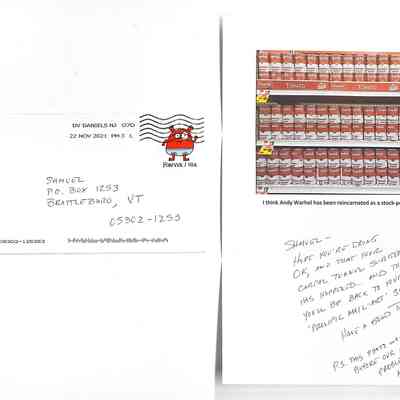 DV DANIELS NJ 070
22 NOV 2021 PM 3 L
FOREVER / USA
SAMUEL
P.O. BOX 1253
BRATTLEBORO, VT
05302-1253
I think Andy Warhol has been reincarnated as a stock p
SAMUEL -
HOPE YOU'RE DOING
OK, AND THAT YOUR
CARPAL TUNNEL SURGER
HAS HAPPENED... AND TH
YOU'LL BE BACK TO YOUR
"PROLIFIC MAIL-ART" S
HAVE A GOOD T
P.S. THIS PHOTO WA
BEFORE OUR
PROBLE